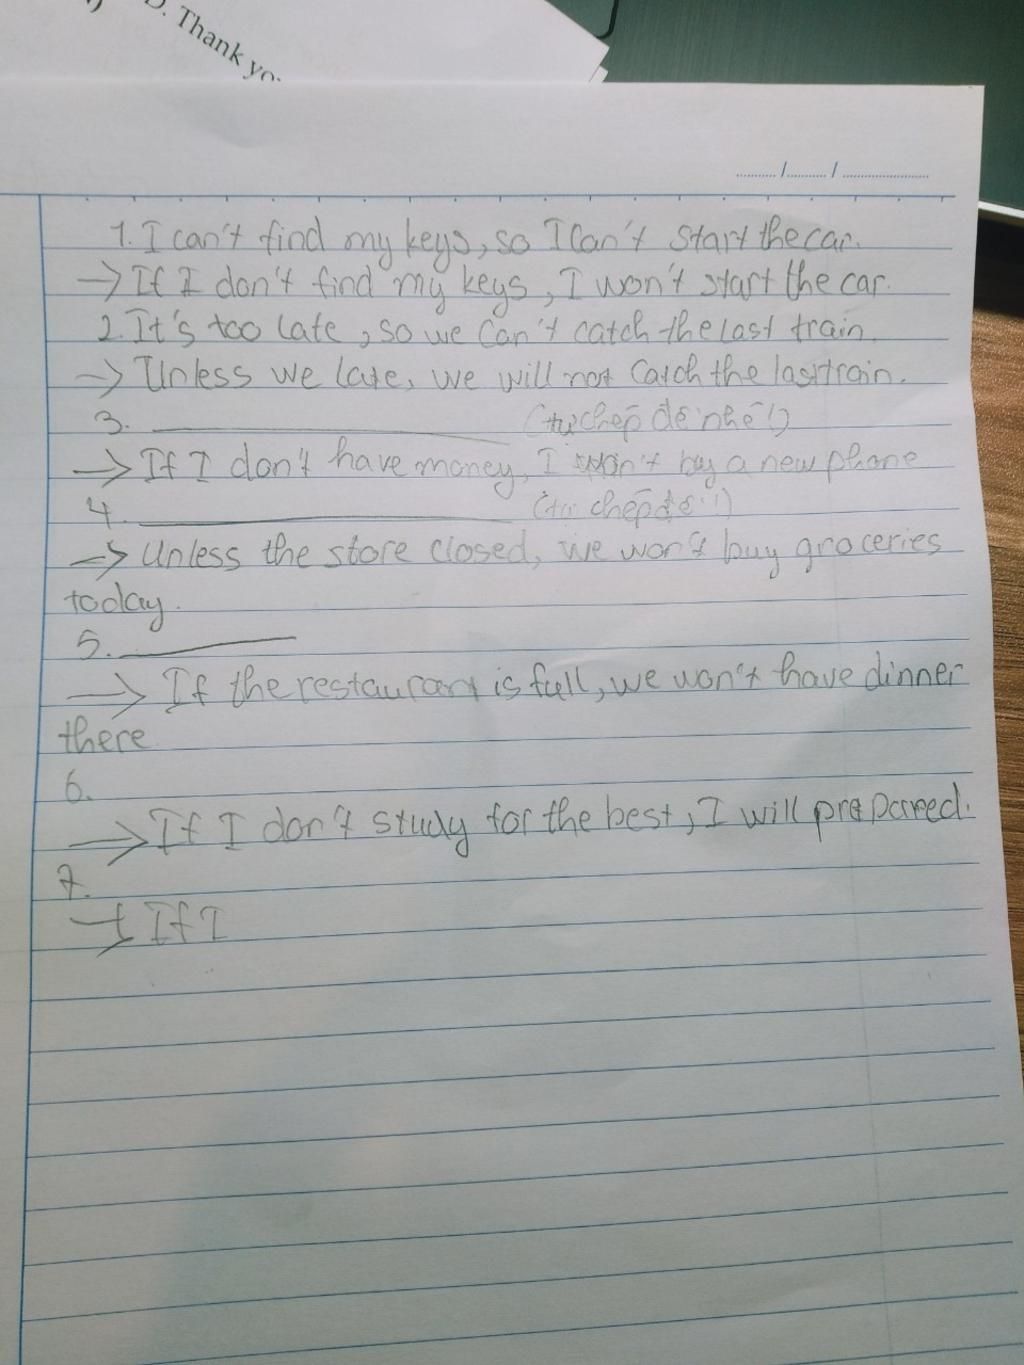 D. Thank yo
1. I can't find my keys, so I Can't start the car.
→ If I don't find my keys, I won't start the car.
2. It's too late, so we Can't catch the last train.
→ Unless we late, we will not Catch the last train.
3. (tự chép đề nhé!)
→ If I don't have money, I won't by a new phone
4. (tự chép đề!)
→ Unless the store closed, we won't buy groceries
today.
5.
→ If the restaurant is full, we won't have dinner
there
6.
→ If I don't study for the best, I will prepared.
7.
→ If I